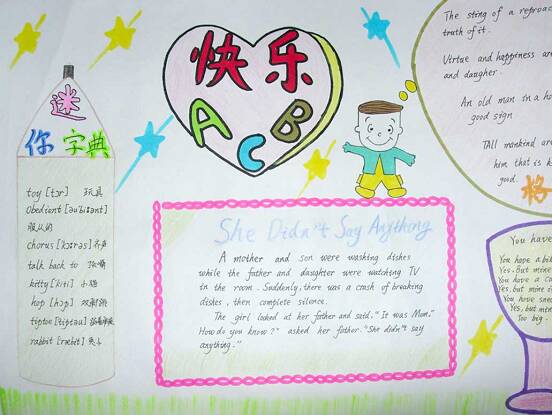 快乐
ABC
迷
你字典
toy [tɔr] 玩具
Obedient [əu'bi:ənt]
服从的
chorus [kɔ:rəs] 齐声
talk back to 顶嘴
kitty [kiti] 小猫
hop [hɔp]
tiptoe [tiptəu]
rabbit [ræbit]
She Didn't Say Anything
A mother and son were washing dishes
while the father and daughter were watching TV
in the room. Suddenly, there was a crash of breaking
dishes, then complete silence.
The girl looked at her father and said, "It was Mom."
How do you know?" asked her father. "She didn't say
anything."
The sting of a reproac
truth of it.
Virtue and happiness ar
and daugher.
An old man in a ho
good sign
TAll mankind ar
him that is k
good.
格
You have
You hope a bik
Yes, but mine i
You have a co
Yes, but mine i
You have sne
Yes, but min
Too big.